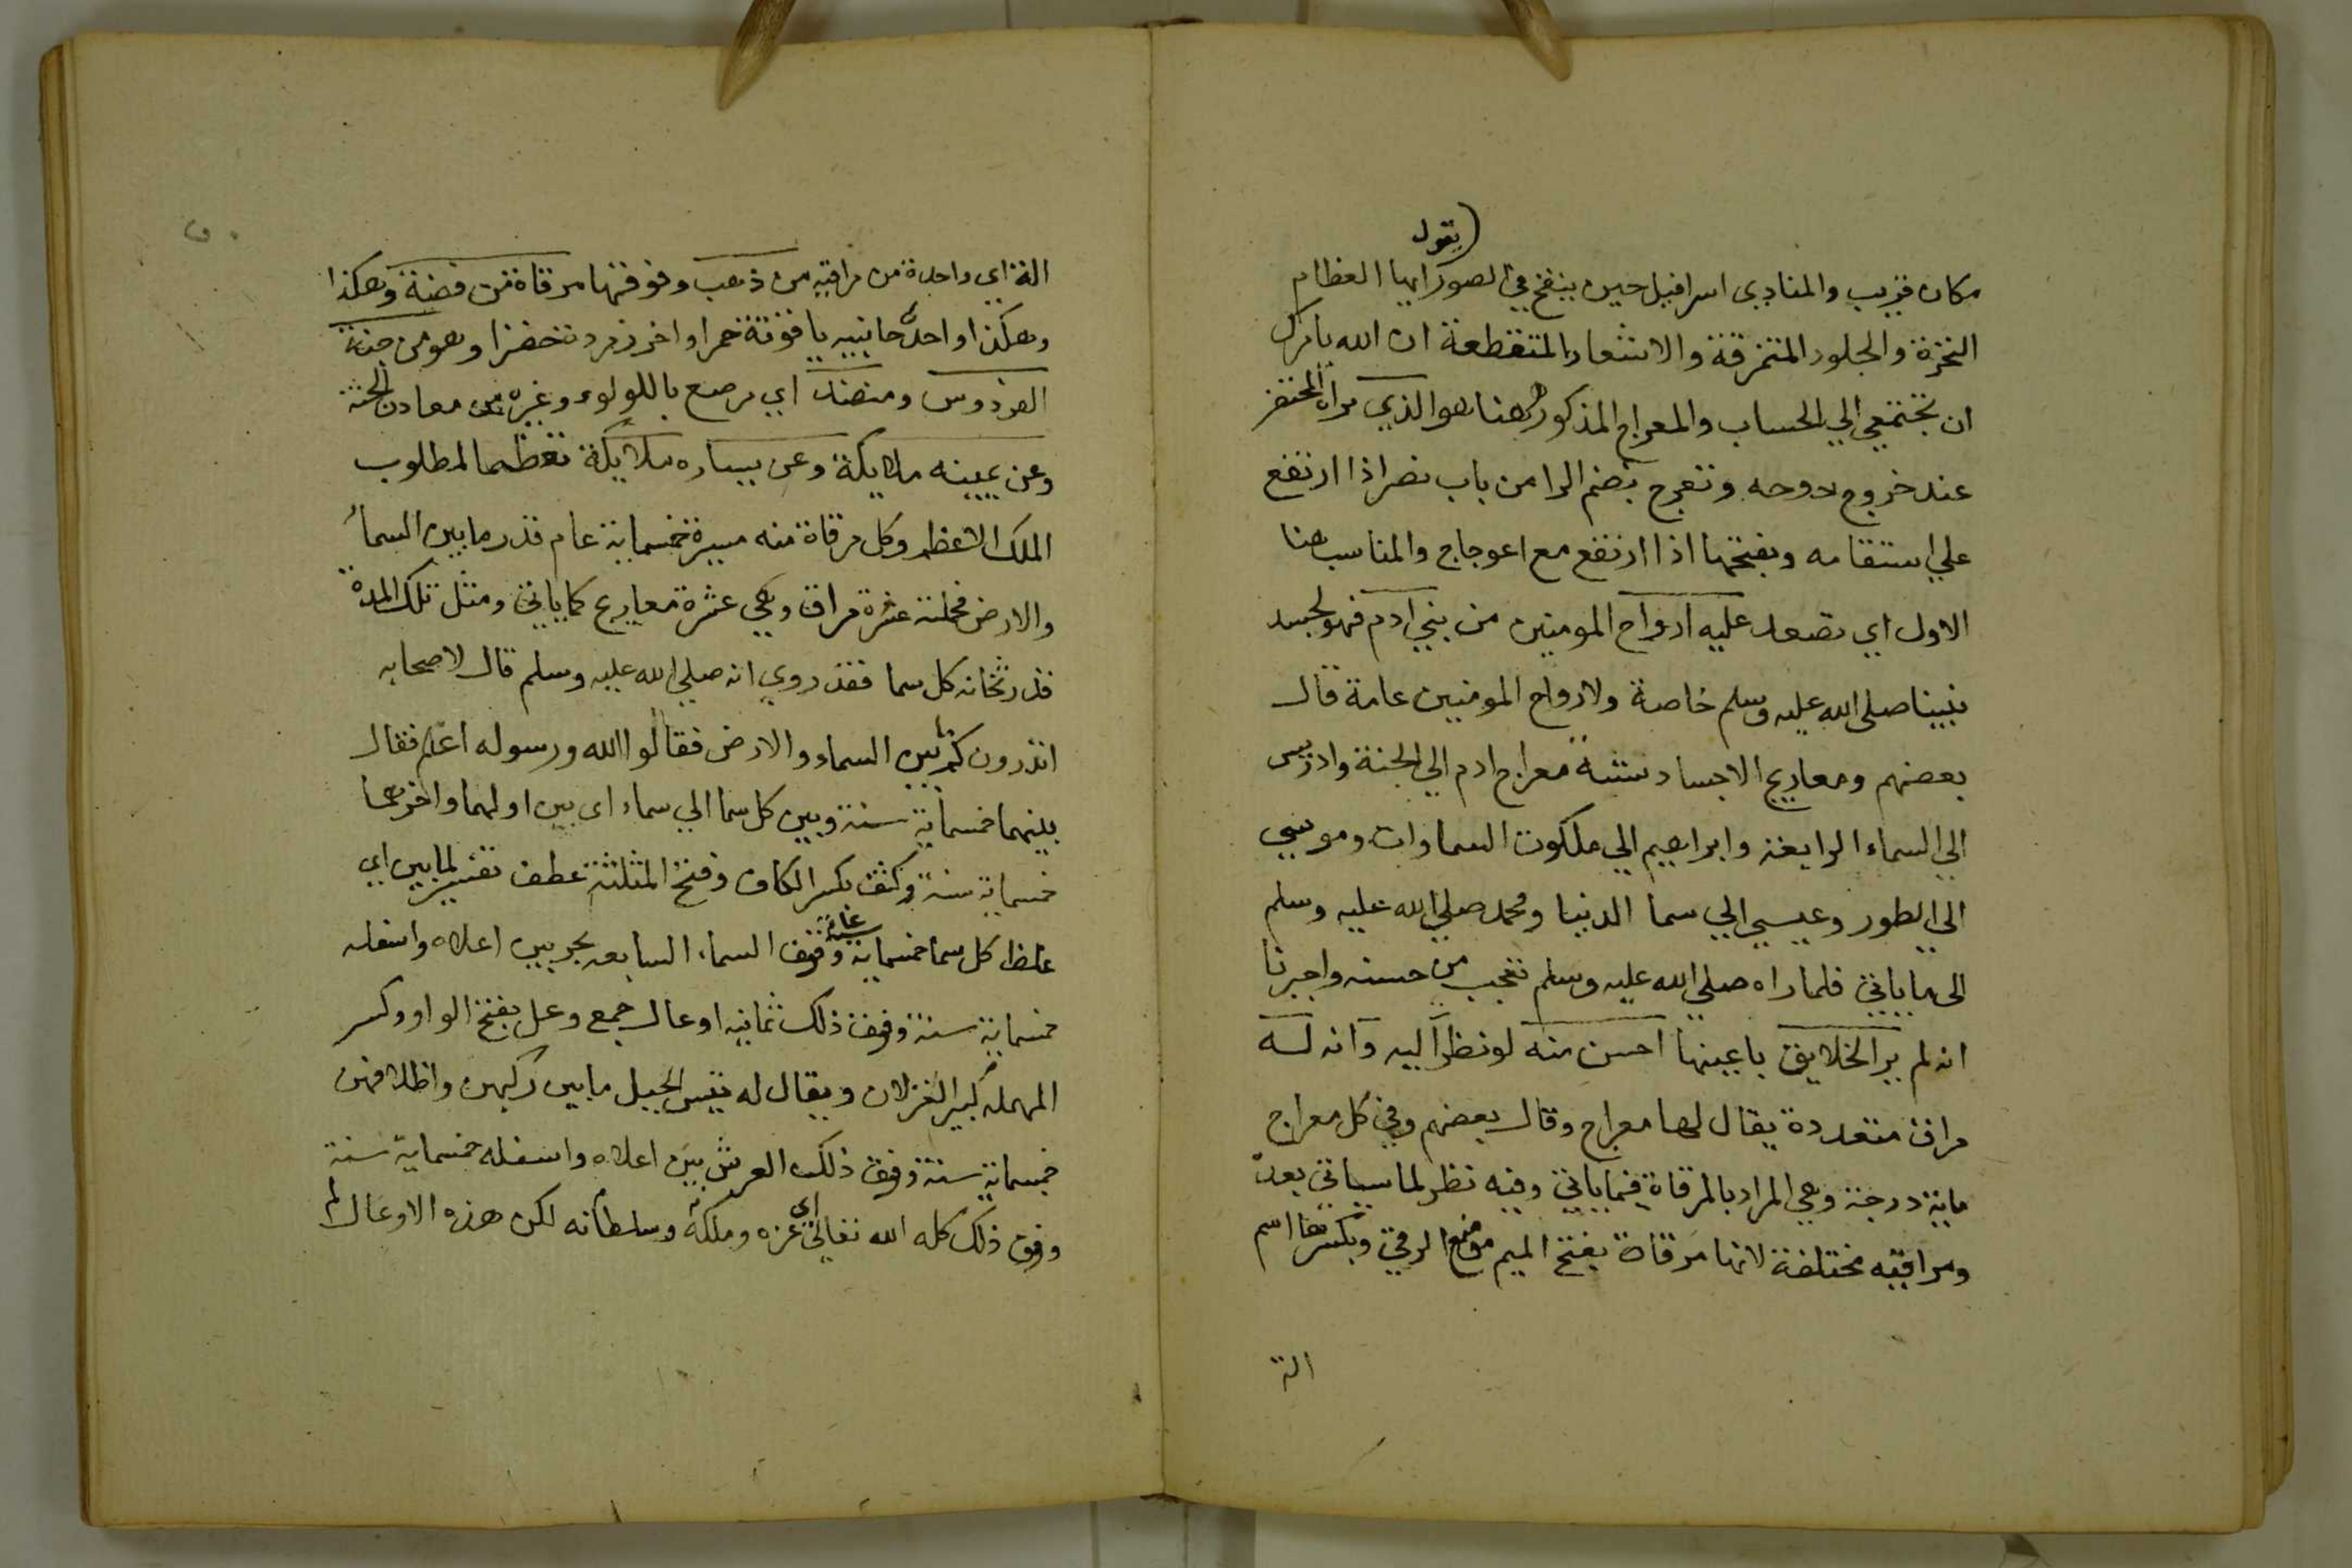 يقول
مكان قريب والمنادي اسرافيل حين ينفخ في الصور ايها العظام
النخرة والجلود المتمزقة والاشعار المتقطعة ان الله يامركن
ان تجتمعي الي الحساب والمعراج المذكور هنا هو الذي يراه المحتضر
عند خروج روحه وتعرج بضم الرا من باب نصر اذا ارتفع
علي استقامه وبفتحها اذا ارتفع مع اعوجاج والمناسب هنا
الاول اي تصعد عليه ارواح المومنين من بني ادم فهو لجسد
نبينا صلى الله عليه وسلم خاصة ولارواح المومنين عامة قال
بعضهم ومعاريج الاجساد ستة معراج ادم الي الجنة وادريس
الي السماء الرابعة وابراهيم الي ملكوت السماوات وموسي
الي الطور وعيسي الي سما الدنيا ومحمد صلي الله عليه وسلم
الى ما ياتي فلما راه صلي الله عليه وسلم تعجب من حسنه واخبرنا
انه لم ير الخلايق باعينها احسن منه لو نظرا اليه وانه له
مراق متعددة يقال لها معراج وقال بعضهم وفي كل معراج
ماية درجة وهي المراد بالمرقاة فيما ياتي وفيه نظر لما سياتي بعد
ومراقيه مختلفة لانها مرقاة بفتح الميم موضع الرقي وبكسرها اسم
الة
الة اي واحدة من مراقيه من ذهب وفوقها مرقاة من فضة وهكذا
وهكذا واحد جانبيه ياقوتة حمرا واخر زمردة خضرا وهو من جنة
الفردوس ومنضد اي مرصع باللولوء وغيره من معادن الجنة
وعن يمينه ملايكة وعن يساره ملايكة تعظيما لمطلوب
الملك الاعظم وكل مرقاة منه مسيرة خمسماية عام قدر ما بين السما
والارض فجملته عشرة مراق وهي عشرة معاريج كما ياتي ومثل تلك المدة
قدر ثخانه كل سما فقد روي انه صلي الله عليه وسلم قال لاصحابه
اتدرون كم ما بين السماء والارض فقالوا الله ورسوله اعلم فقال
بينهما خمسماية سنة وبين كل سما الي سماء اي بين اولهما واخرهما
خمسماية سنة وكثف بكسر الكاف وفتح المثلثة عطف تفسير لما بين اي
غلظ كل سما خمسماية عام وفوق السماء السابعه بحر بين اعلاه واسفله
خمسماية سنة وفوق ذلك ثمانيه اوعال جمع وعل بفتح الواو وكسر
المهملة كبير الغزلان ويقال له تيس الجبل ما بين ركبهن واظلافهن
خمسماية سنة وفوق ذلك العرش بين اعلاه واسفله خمسماية سنة
وفوق ذلك كله الله تعالي اي عزه وملكه وسلطانه لكن هذه الاوعال لم